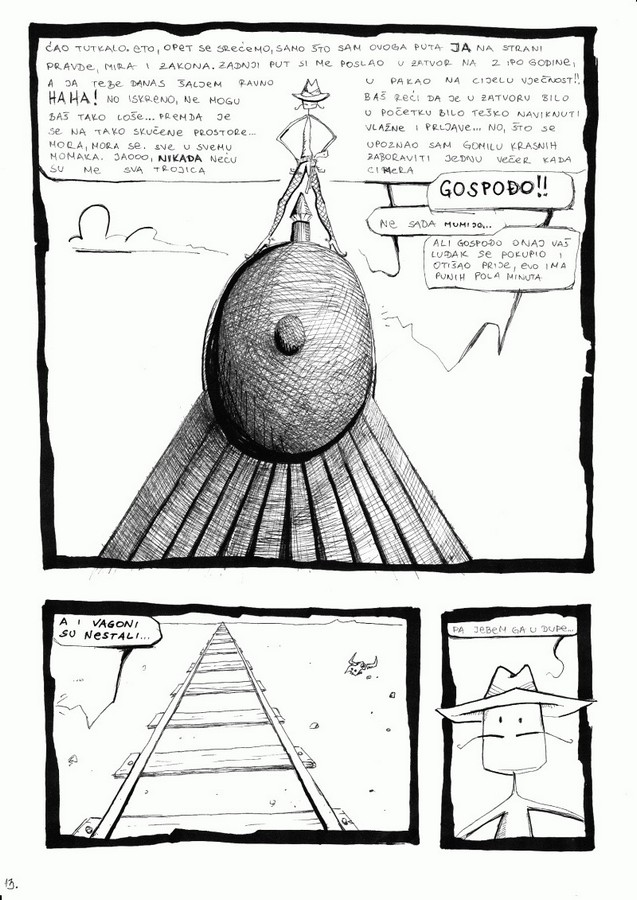 ĆAO TUTKALO. ETO, OPET SE SREĆEMO, SAMO ŠTO SAM OVOGA PUTA JA NA STRANI
PRAVDE, MIRA I ZAKONA. ZADNJI PUT SI ME POSLAO U ZATVOR NA 2 IPO GODINE,
A JA TEBE DANAS ŠALJEM RAVNO U PAKAO NA CIJELU VJEČNOST!!
HAHA! NO ISKRENO, NE MOGU BAŠ REĆI DA JE U ZATVORU BILO
BAŠ TAKO LOŠE... PREMDA JE U POČETKU BILO TEŠKO NAVIKNUTI
SE NA TAKO SKUČENE PROSTORE... VLAŽNE I PRLJAVE... NO, ŠTO SE
MORA, MORA SE. SVE U SVEMU UPOZNAO SAM GOMILU KRASNIH
MOMAKA. JAOOO, NIKADA NEĆU ZABORAVITI JEDNU VEČER KADA
SU ME SVA TROJICA
GOSPOĐO!!
NE SADA MUMIJO...
ALI GOSPOĐO ONAJ VAŠ
LUĐAK SE POKUPIO I
OTIŠAO PRIJE, EVO IMA
PUNIH POLA MINUTA
A I VAGONI
SU NESTALI...
PA JEBEM GA U DUPE...
13.